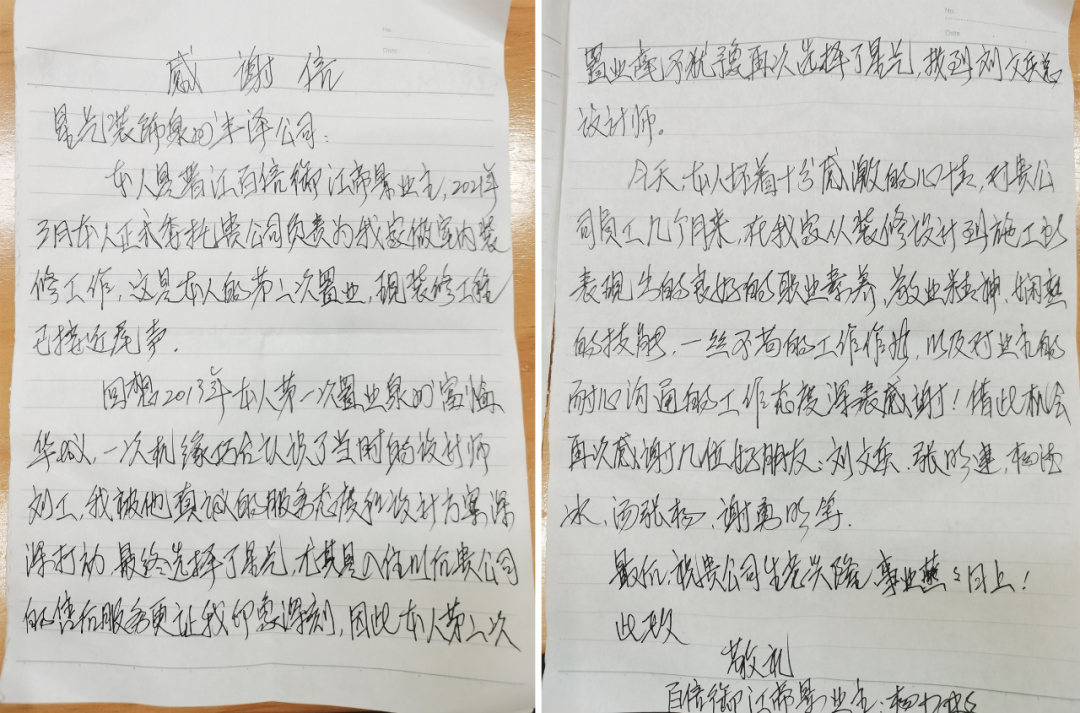 No.
Date
感谢信
星艺装饰泉州丰泽公司：
本人是晋江百信御江帝景业主，2021年
3月本人正式委托贵公司负责为我家做室内装
修工作，这是本人的第二次置业，现装修工程
已接近尾声.
回想2013年本人第一次置业泉州富临
华城，一次机缘巧合认识了当时的设计师
刘工，我被他真诚的服务态度和设计方案深
深打动，最终选择了星艺，尤其是入住以后贵公司
的售后服务更让我印象深刻，因此本人第二次
No.
Date
置业毫不犹豫再次选择了星艺，找到刘文兵总
设计师。
今天，本人怀着十分感激的心情，对贵公
司员工几个月来，在我家从装修设计到施工所
表现出的良好的职业素养、敬业精神、娴熟
的技能，一丝不苟的工作作风，以及对业主的
耐心沟通的工作态度深表感谢！借此机会
再次感谢几位好朋友：刘文兵、张
水、汤张杨、谢勇明等.
最后，祝贵公司生意兴隆，事业蒸蒸日上！
此致
敬礼
百信御江帝景业主：杨